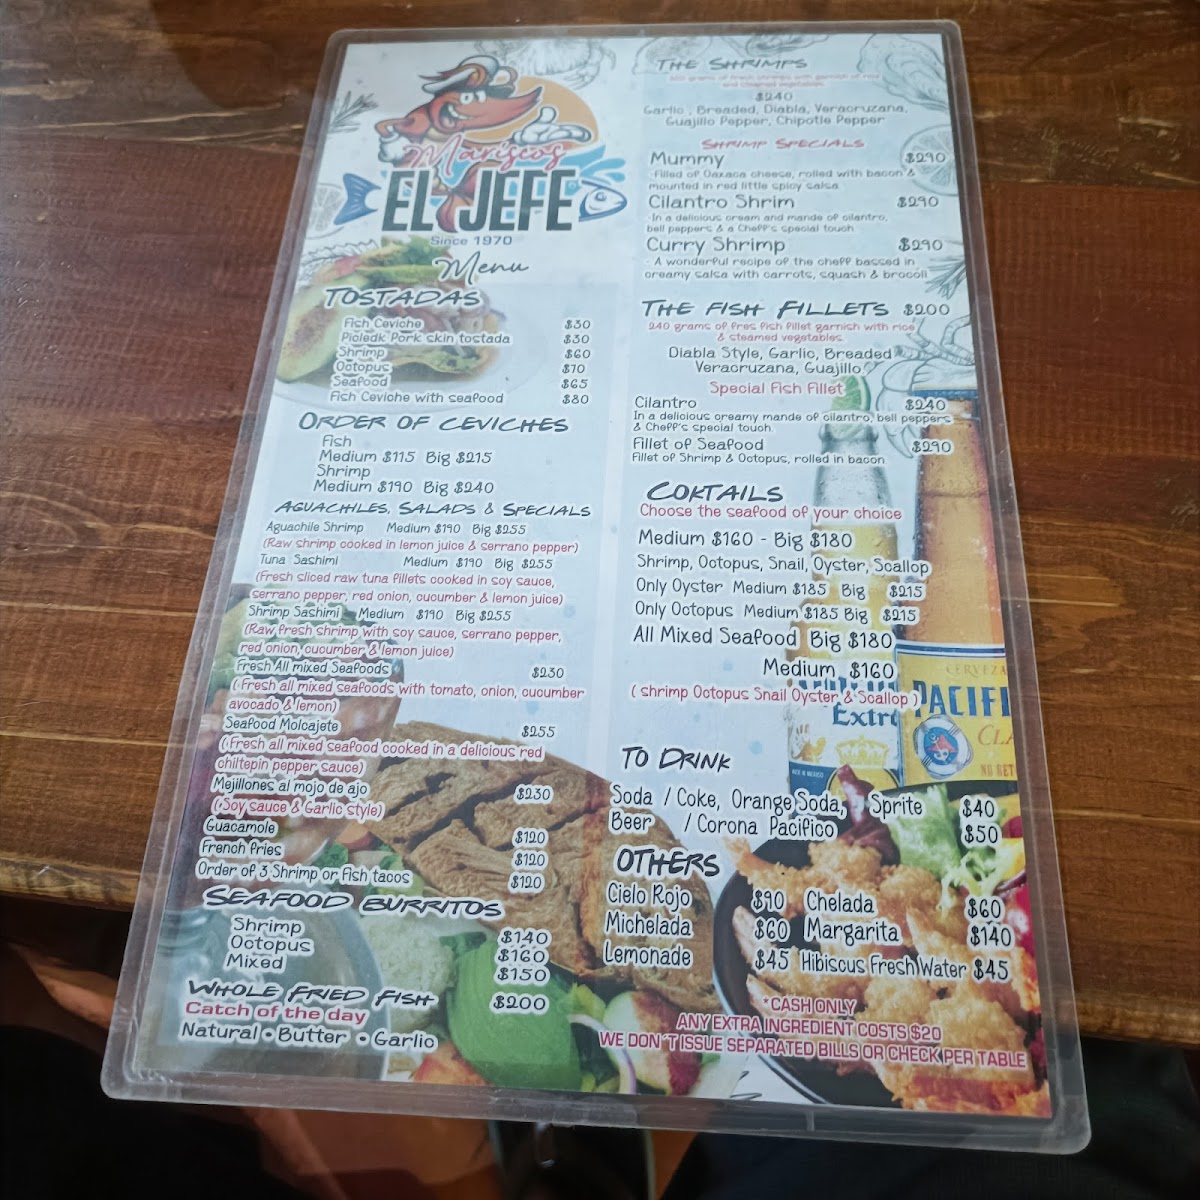 Mariscos
EL JEFE
Since 1970
Menu
TOSTADAS
Fish Ceviche $30
Picledk Pork skin tostada $30
Shrimp $60
Octopus $70
Seafood $65
Fish Ceviche with seafood $80
ORDER OF CEVICHES
Fish
Medium $115 Big $215
Shrimp
Medium $190 Big $240
AGUACHILES, SALADS & SPECIALS
Aguachile Shrimp Medium $190 Big $255
(Raw shrimp cooked in lemon juice & serrano pepper)
Tuna Sashimi Medium $190 Big $255
(Fresh sliced raw tuna fillets cooked in soy sauce,
serrano pepper, red onion, cucumber & lemon juice)
Shrimp Sashimi Medium $190 Big $255
(Raw fresh shrimp with soy sauce, serrano pepper,
red onion, cucumber & lemon juice)
Fresh All mixed Seafoods $230
(Fresh all mixed seafoods with tomato, onion, cucumber
avocado & lemon)
Seafood Molcajete $255
(Fresh all mixed seafood cooked in a delicious red
chiltepin pepper sauce)
Mejillones al mojo de ajo $230
(Soy sauce & Garlic style)
Guacamole $120
French fries $120
Order of 3 Shrimp or fish tacos $120
SEAFOOD BURRITOS
Shrimp $140
Octopus $160
Mixed $150
WHOLE FRIED FISH $200
Catch of the day
Natural • Butter • Garlic
THE SHRIMPS
$240
Garlic, Breaded, Diabla, Veracruzana,
Guajillo Pepper, Chipotle Pepper
SHRIMP SPECIALS
Mummy $290
-Filled of Oaxaca cheese, rolled with bacon &
mounted in red little spicy salsa
Cilantro Shrim $290
-In a delicious cream and mande of cilantro,
bell peppers & a Cheff's special touch
Curry Shrimp $290
- A wonderful recipe of the cheff bassed in
creamy salsa with carrots, squash & brocoli
THE FISH FILLETS $200
240 grams of fres fish fillet garnish with rice
& steamed vegetables
Diabla Style, Garlic, Breaded
Veracruzana, Guajillo,
Special Fish Fillet
Cilantro $240
In a delicious creamy mande of cilantro, bell peppers
& Cheff's special touch
Fillet of Seafood $290
Fillet of Shrimp & Octopus, rolled in bacon
COKTAILS
Choose the seafood of your choice
Medium $160 - Big $180
Shrimp, Octopus, Snail, Oyster, Scallop
Only Oyster Medium $185 Big $215
Only Octopus Medium $185 Big $215
All Mixed Seafood Big $180
Medium $160
( shrimp Octopus Snail Oyster & Scallop )
Extra
CERVEZA
PACIFI
CLA
TO DRINK
Soda / Coke, Orange Soda, Sprite $40
Beer / Corona Pacifico $50
OTHERS
Cielo Rojo $90 Chelada $60
Michelada $60 Margarita $140
Lemonade $45 Hibiscus Fresh Water $45
*CASH ONLY
ANY EXTRA INGREDIENT COSTS $20
WE DON´T ISSUE SEPARATED BILLS OR CHECK PER TABLE